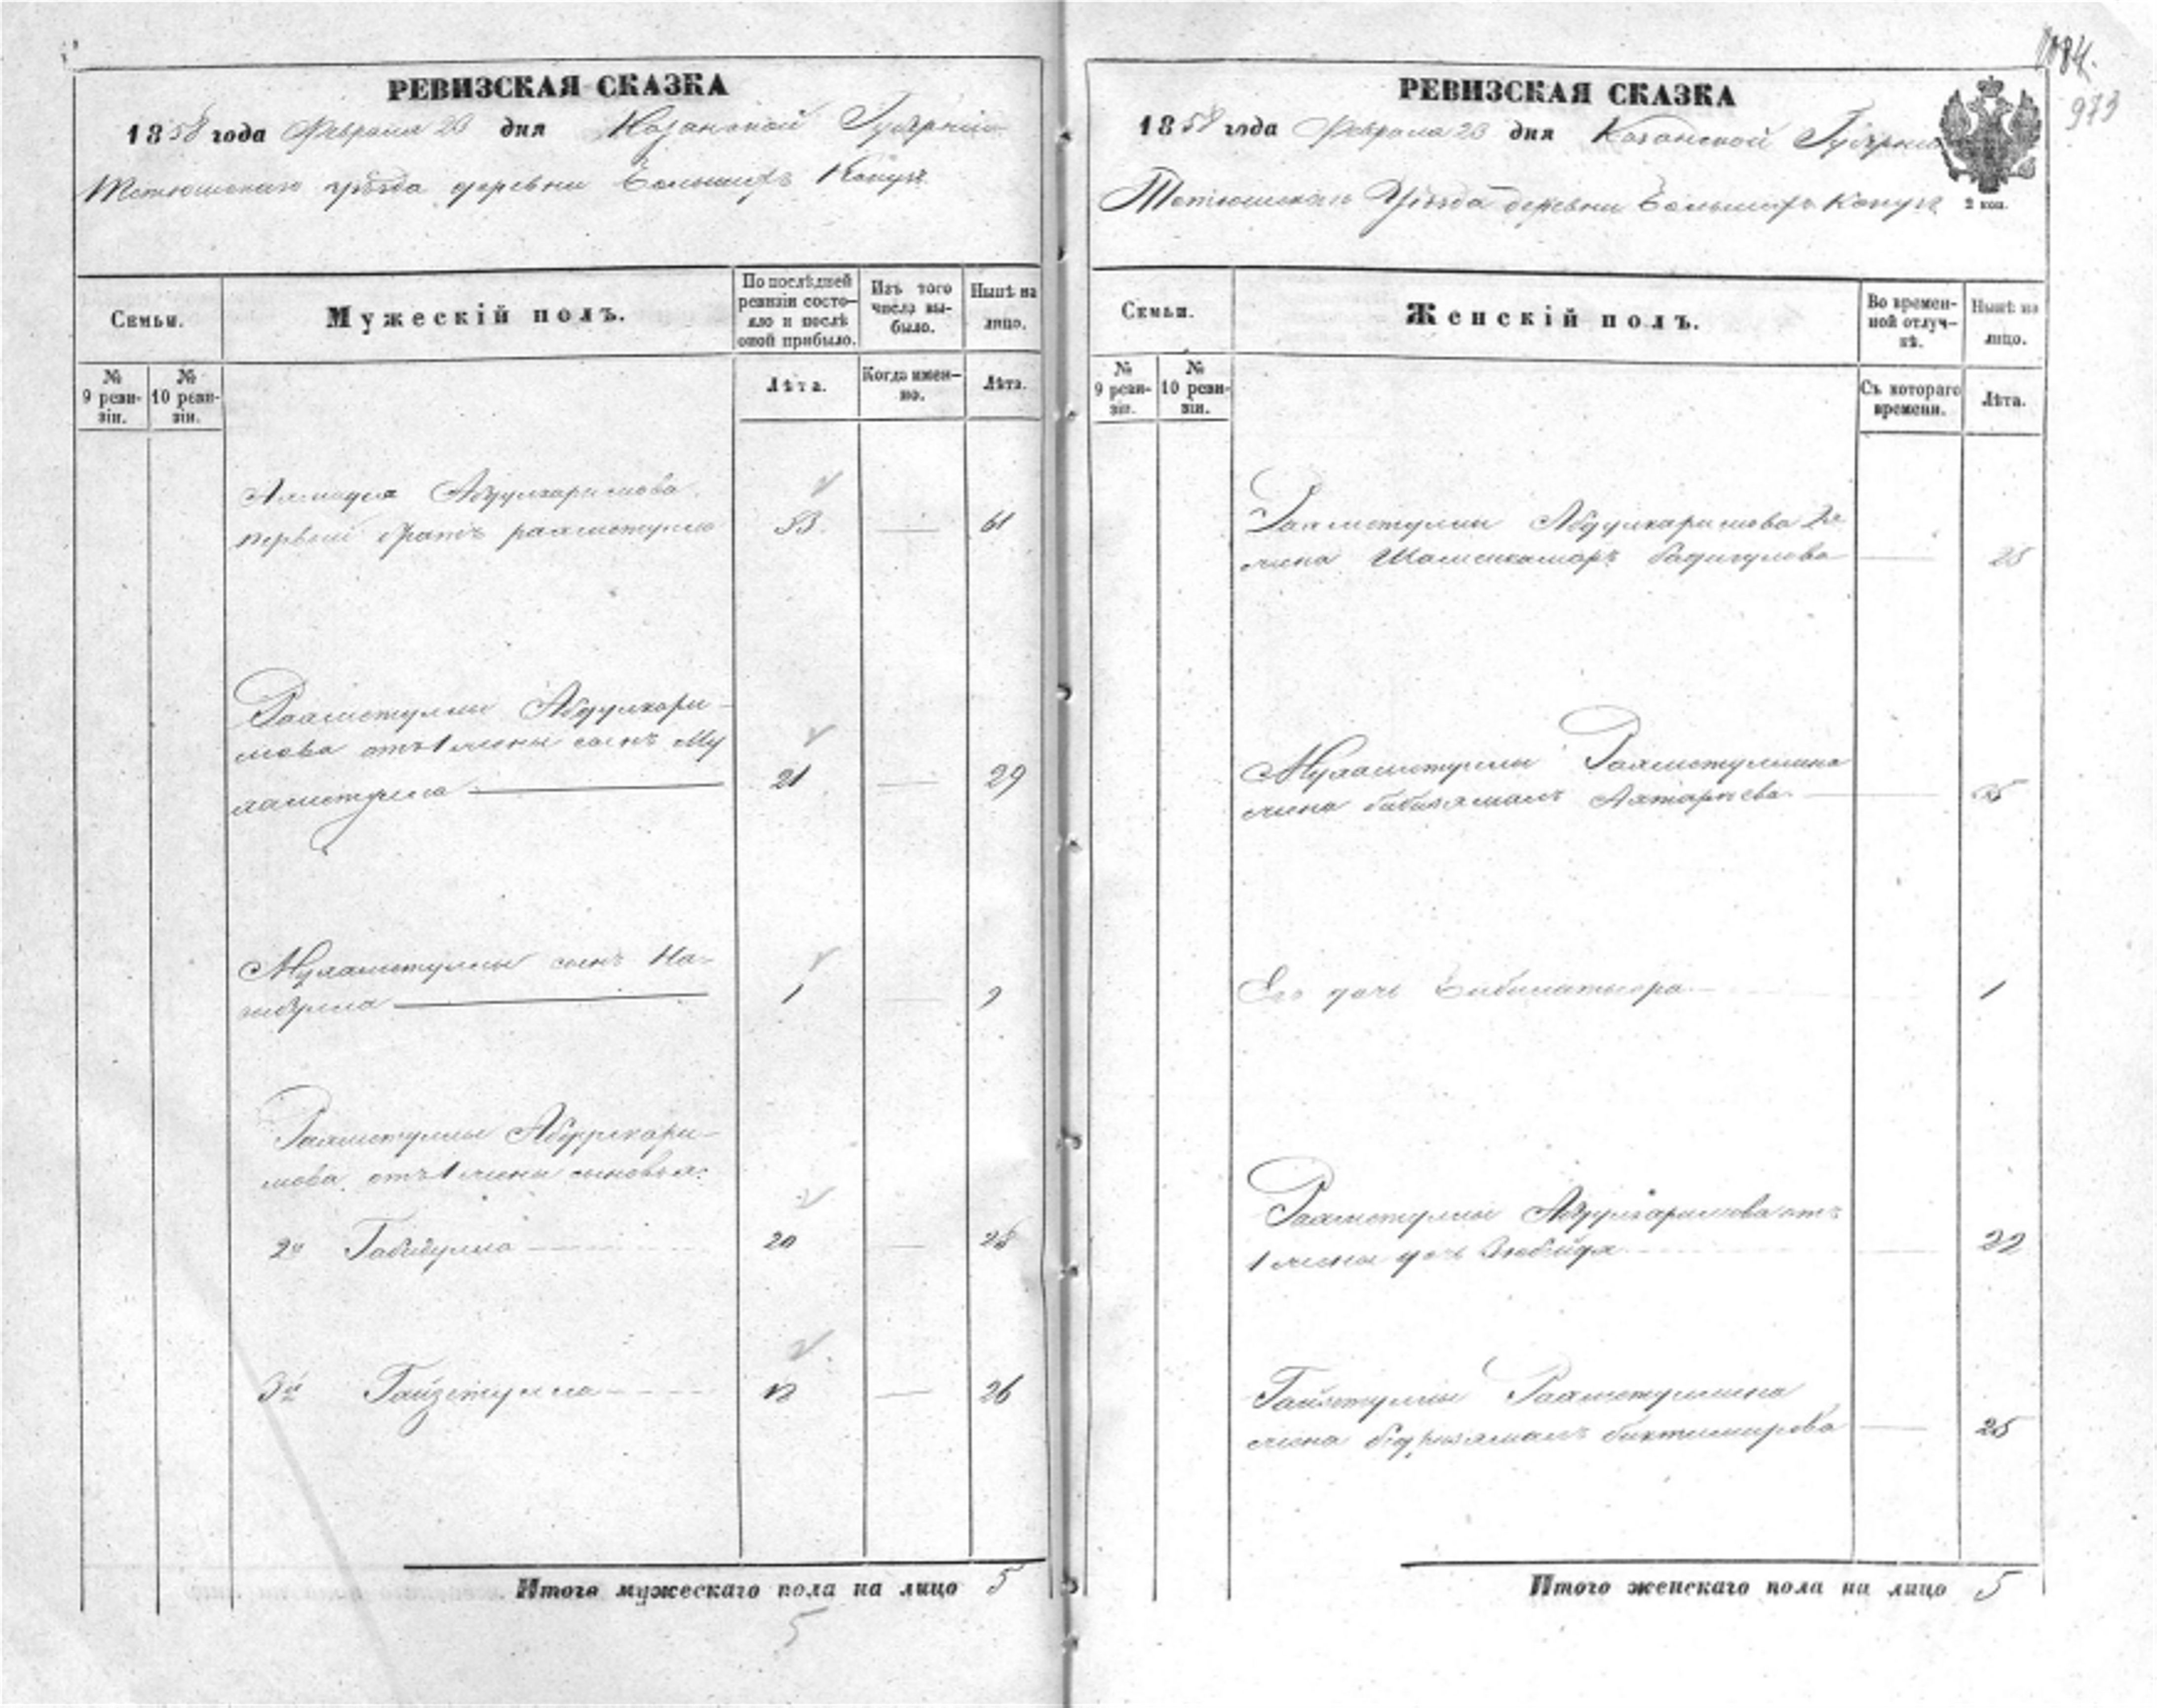 РЕВИЗСКАЯ СКАЗКА
1858 года Февраля 23 дня Казанской Губернии
Тетюшскаго уѣзда деревни Большихъ
Семьи.
Мужескій полъ.
По послѣдней ревизіи состо-
яло и послѣ
оной прибыло.
Изъ того
числа вы-
было.
Нынѣ на
лицо.
№
9 реви-
зіи.
№
10 реви-
зіи.
Лѣта.
Когда имен-
но.
Лѣта.
Абдулкаримова
первой братъ рахметулла 53 — 61
Рахметуллы Абдулкари-
мова отъ 1 жены сынъ Му
хаметулла 21 — 29
Мухаметуллы сынъ На-
1 — 9
Рахметуллы Абдулкари-
мова отъ 1 жены сыновья:
2й Габидулла 20 — 28
3й 26
Итого мужескаго пола на лицо 5
5
1084.
973
РЕВИЗСКАЯ СКАЗКА
1858 года Февраля 23 дня Казанской Губернии
Тетюшскаго Уѣзда деревни Большихъ
2 коп.
Семьи.
Женскій полъ.
Во времен-
ной отлуч-
кѣ.
Нынѣ на
лицо.
№
9 реви-
зіи.
№
10 реви-
зіи.
Съ котораго
времени.
Лѣта.
Рахметуллы Абдулкаримова 2я
жена Шамсикамаръ — 25
Мухаметуллы Рахметуллина
жена бибизямалъ —
Его дочь 1
Рахметуллы Абдулкаримова отъ
1 жены дочь Зюбейда — 22
Рахметуллина
жена биктимирова — 25
Итого женскаго пола на лицо 5